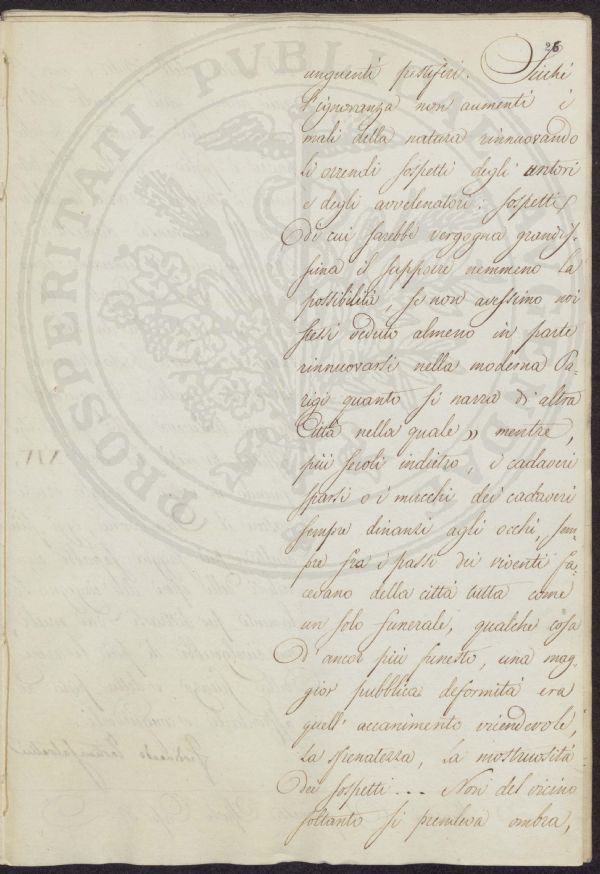 26
unguenti pestiferi. Sicchè
l'ignoranza non aumenti i
mali della natura rinnuovando
li orrendi sospetti degli untori
e degli avvelenatori: sospetti
di cui sarebbe vergogna grandis-
sima il supporre nemmeno la
possibilità, se non avessimo noi
stessi veduto almeno in parte
rinnuovarsi nella moderna Pa-
rigi quanto si narra d'altra
Città nella quale » mentre,
più secoli indietro, i cadaveri
sparsi o i mucchi dei cadaveri
sempre dinanzi agli occhi, sem-
pre fra i passi dei viventi fa-
cevano della città tutta come
un solo funerale, qualche cosa
d'ancor più funesto, una mag-
gior pubblica deformità era
quell' accanimento vicendevole,
la sfrenatezza, la mostruosità
dei sospetti... Non del vicino
soltanto si prendeva ombra,
PROSPERITATI PVBLICAE